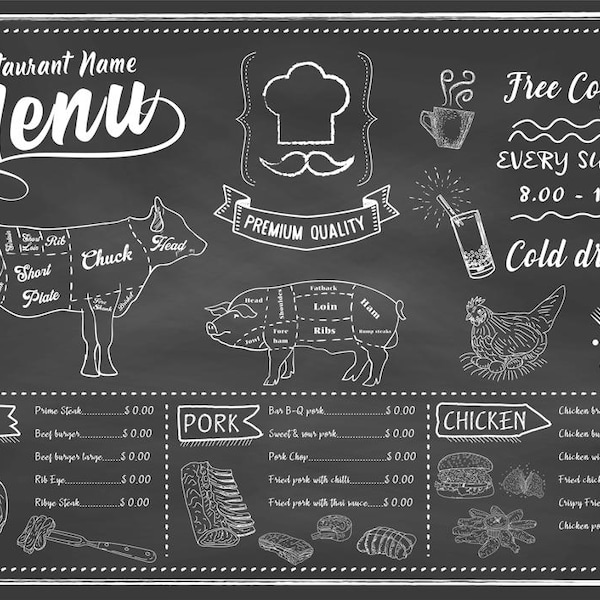 taurant Name
Menu
PREMIUM QUALITY
Free Co
EVERY SU
8.00 - 1
Cold dr
Short Loin
Rib
Chuck
Head
Short
Plate
Fore Shank
Fatback
Head
Shoulders
Loin
Ham
Ribs
Jowl
Fore ham
Rump steaks
Prime Steak...............$ 0.00
Beef burger...............$ 0.00
Beef burger large.....$ 0.00
Rib Eye......................$ 0.00
Ribye Steak...............$ 0.00
PORK
Bar B-Q pork.........................$ 0.00
Sweet & sour pork................$ 0.00
Pork Chop.............................$ 0.00
Fried pork with chills............$ 0.00
Fried pork with thai sauce.....$ 0.00
CHICKEN
Chicken br
Chicken bu
Chicken wi
Fried chick
Crispy Frie
Chicken po